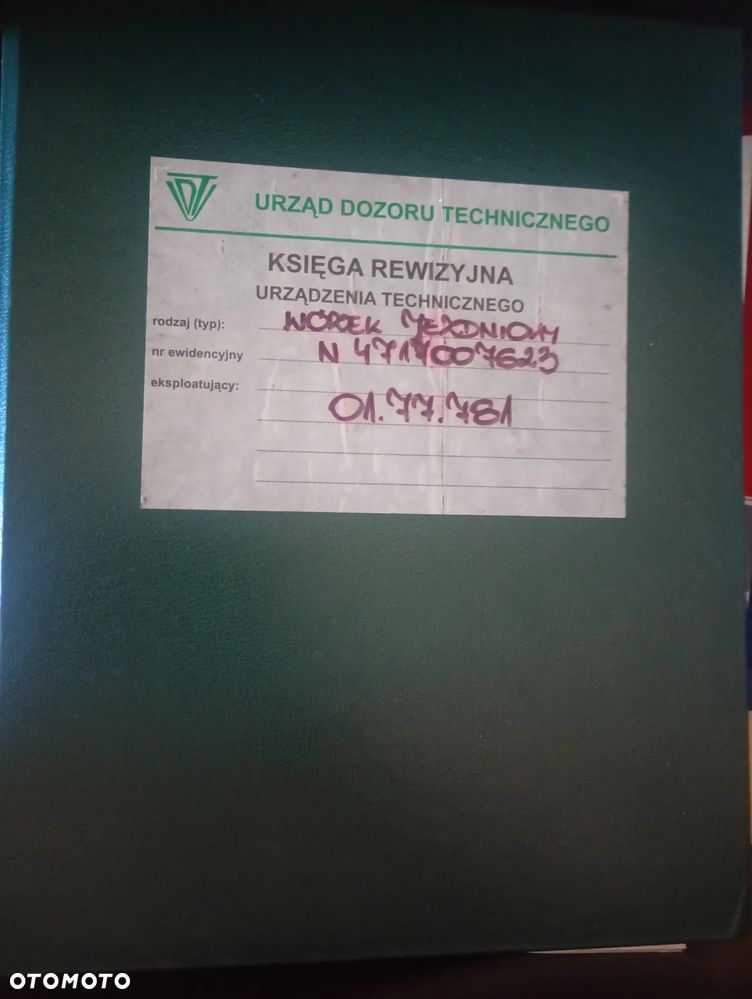 UDT
URZĄD DOZORU TECHNICZNEGO
KSIĘGA REWIZYJNA
URZĄDZENIA TECHNICZNEGO
rodzaj (typ): WÓZEK JEZDNIOWY
nr ewidencyjny N 4717007623
eksploatujący:
01.77.781
OTOMOTO